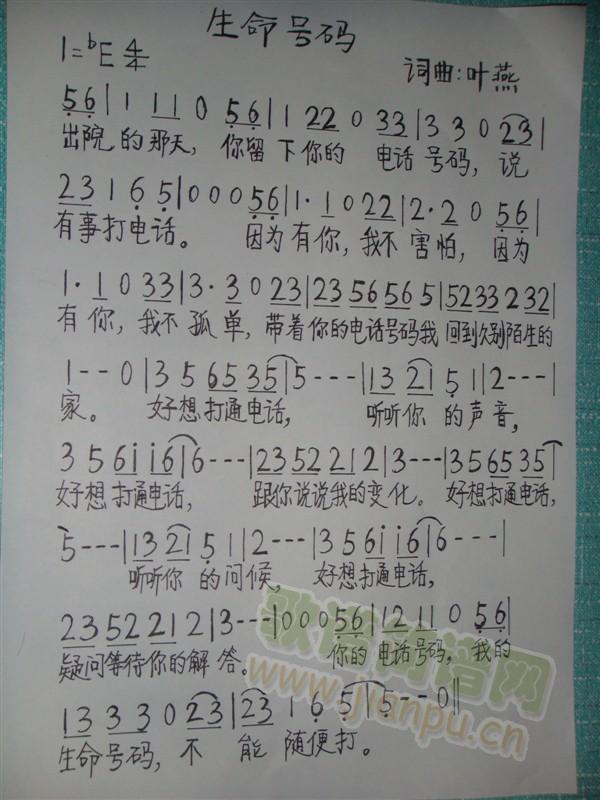 生命号码
1=ᵇE 4/4
词曲:叶燕
56|1 11 0 56|1 22 0 33|3 3 0 23|
出院的那天, 你留下你的 电话号码, 说
23 1 6 5|0 0 0 56|1· 1 0 22|2· 2 0 56|
有事打电话。 因为有你,我不害怕, 因为
1· 1 0 33|3· 3 0 23|23 56 56 5|52 33 2 32|
有你,我不孤单,带着你的电话号码我 回到久别陌生的
1 - - 0|3 5 65 35|5 - - -|13 21 5 1|2 - - -|
家。 好想打通电话, 听听你 的声音,
3 5 6i i6|6 - - -|23 52 21 2|3 - - -|3 5 65 35|
好想打通电话, 跟你说说我的变化。 好想打通电话,
5 - - -|13 21 5 1|2 - - -|3 5 6i i6|6 - - -|
听听你 的问候, 好想打通电话,
23 52 21 2|3 - - -|0 0 0 56|12 11 0 56|
疑问等待你的解答。 你的电话号码,我的
13 3 3 0 23|23 1 6 5|5 - - 0‖
生命号码, 不 能 随便打。
歌谱简谱网
www.jianpu.cn